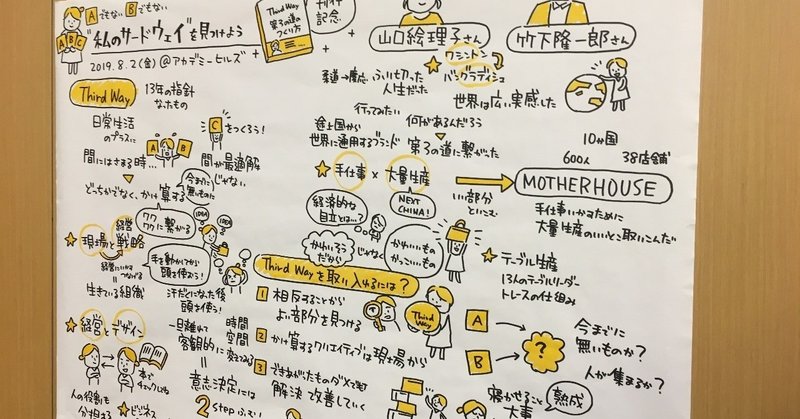 Aでもない Bでもない
"私のサードウェイ"を見つけよう
2019.8.2(金)@アカデミーヒルズ
A B C
Third Way
第3の道の
つくり方
刊行
記念
山口絵理子さん
竹下隆一郎さん
Third Way
13年の指針
なったもの
日常生活
のプラスに
C をつくろう!
A B
間にはさまる時…
間が最適解
じゃない
どっちかでなく、かけ算する
今までに
無いものに
ワシントン
バングラディシュ
柔道→慶応
ふり切った
人生だった
行ってみたい
何があるんだろう
途上国から
世界に通用するブランド
第3の道に繋がった
世界は広い実感した
10カ国
600人
38店舗
手仕事 × 大量生産
いい部分
といこむ
MOTHERHOUSE
手仕事いかすために
大量生産のいいとこ取いこんだ
経済的な
自立とは…?
NEXT
CHINA!
かわいそう
だから
じゃなく
かわいいもの
かっこいいもの
テーブル生産
13人のテーブルリーダー
トレースの仕組み
経営
現場と戦略
ワク
ワクに繋がる
IDEA
IDEA
手を動かしてから
頭を使おう!
生きている組織
汗だくになった後
頭を使う!
経営とデザイン
一旦離れて
時間
空間
客観的に考えてみる
=
意志決定には
2 stepふむ!
本で
人の役割も
分担する
ビジネス
Third Wayを取り入れるには?
1 相反することから
よい部分を見つける
2 かけ算するクリエイティブは現場から
3 できあがったものダメで元
解決 改善していく
Third
Way
A
B
?
今までに
無いものか?
人が集まるか?
寝かせること
大事
熟成